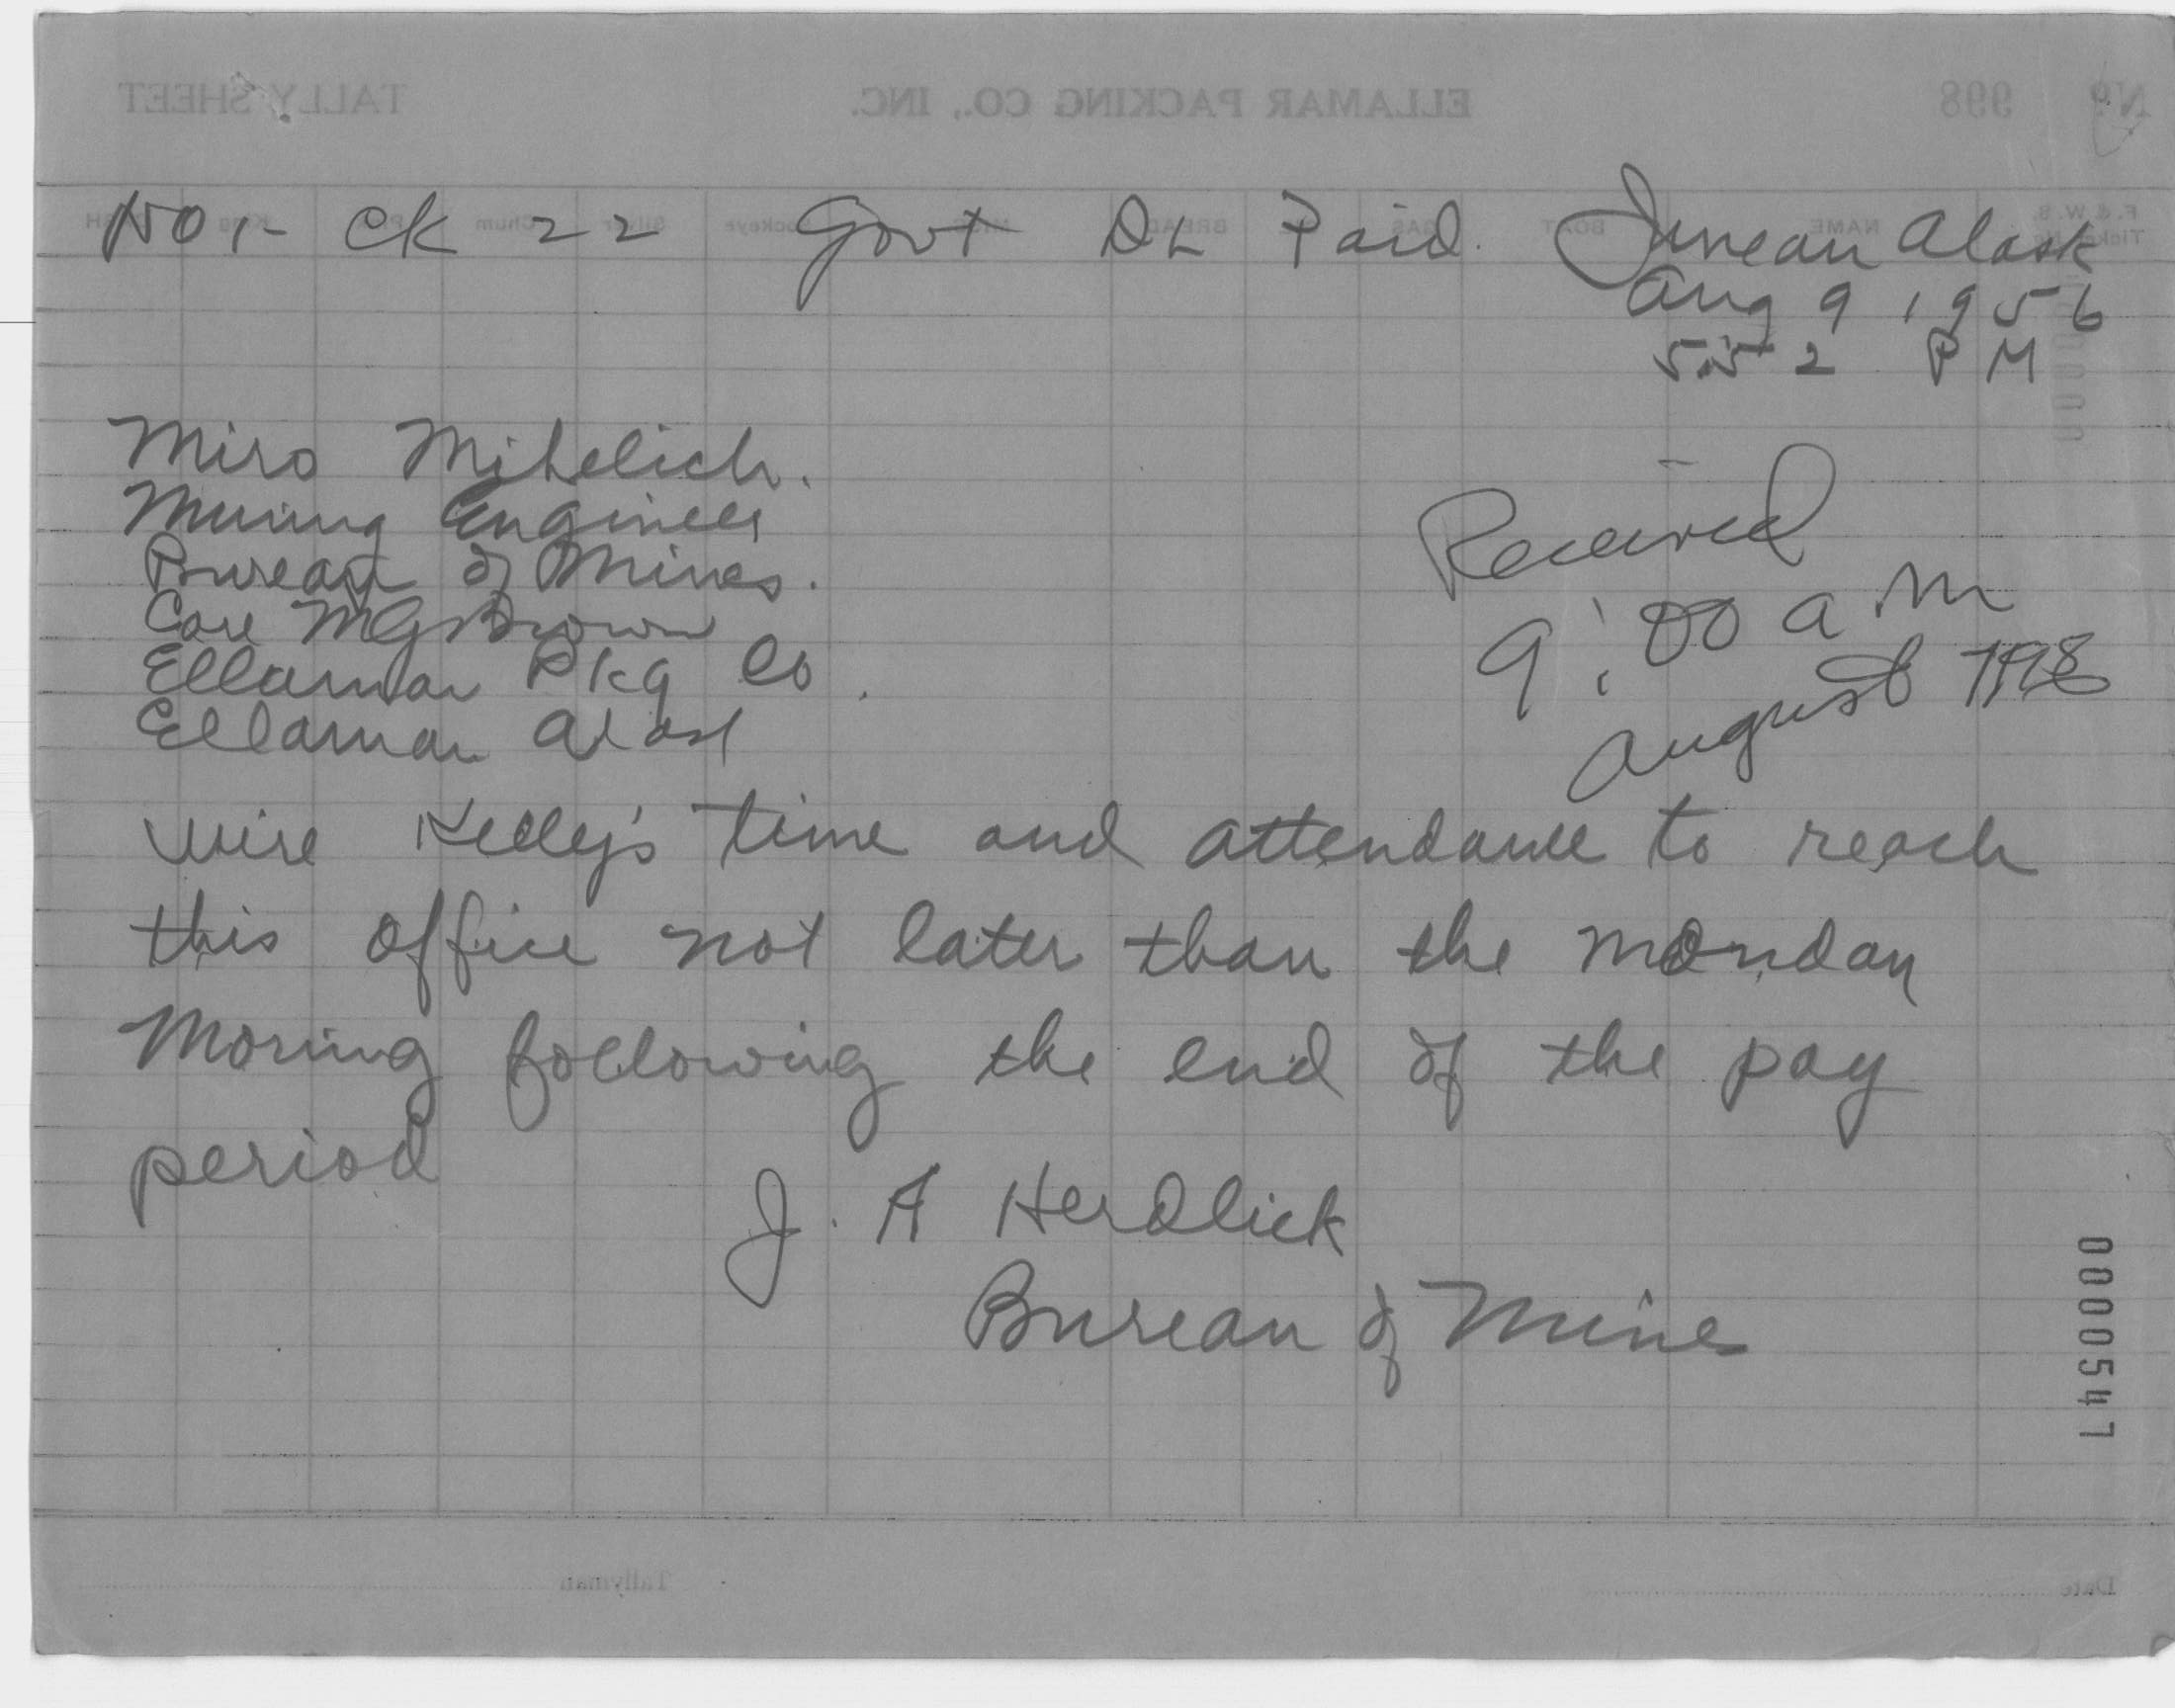 TALLY SHEET ELLAMAR PACKING CO., INC. No 998
NO 1- CK 22 Govt DL Paid. Juneau Alask
Aug 9 1956
552 PM
Miro Mihelich.
Mining Engineer
Bureau of Mines.
Care MG Brown
Ellamar Pkg Co.
Ellamar Alask
Received
9:00 am
August
wire Kelley's time and attendance to reach
this office not later than the monday
Moring following the end of the pay
period
J. A Herdlick
Bureau of Mines
0000547
Tallyman
Date